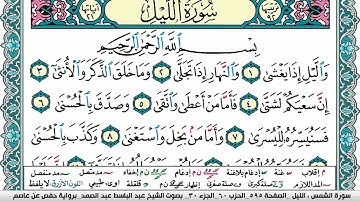 سُورَةُ اللَّيْلِ
بِسْمِ اللَّهِ الرَّحْمَٰنِ الرَّحِيمِ
وَاللَّيْلِ إِذَا يَغْشَىٰ ١ وَالنَّهَارِ إِذَا تَجَلَّىٰ ٢ وَمَا خَلَقَ الذَّكَرَ وَالْأُنثَىٰ ٣
إِنَّ سَعْيَكُمْ لَشَتَّىٰ ٤ فَأَمَّا مَنْ أَعْطَىٰ وَاتَّقَىٰ ٥ وَصَدَّقَ بِالْحُسْنَىٰ ٦
فَسَنُيَسِّرُهُ لِلْيُسْرَىٰ ٧ وَأَمَّا مَن بَخِلَ وَاسْتَغْنَىٰ ٨ وَكَذَّبَ بِالْحُسْنَىٰ
المصحف المقسم ، الليل ، الصفحة ٥٩٥ الحزب ٦٠ الجزء ٣٠ بصوت الشيخ عبد الباسط عبد الصمد برواية حفص عن عاصم